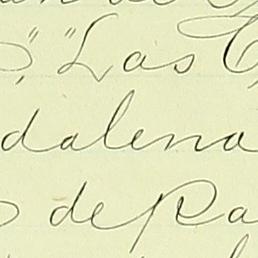 " "Las
dalena
de Ra